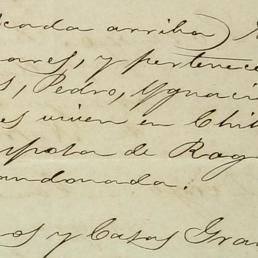 cada arriba)
ares, y pertenece
s, Pedro, Ygnaci
es viven en Chi
de Rag
andonada.
os y Casas Gra